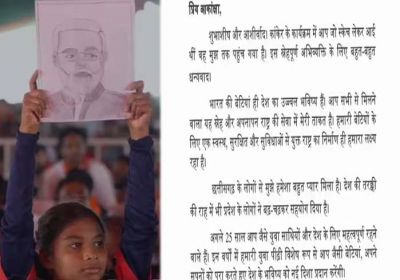 प्रिय आकांक्षा,
शुभाशीष और आशीर्वाद। कांकेर के कार्यक्रम में आप जो स्केच लेकर आई
थीं वह मुझ तक पहुंच गया है। इस स्नेहपूर्ण अभिव्यक्ति के लिए बहुत-बहुत
धन्यवाद।
भारत की बेटियां ही देश का उज्ज्वल भविष्य हैं। आप सभी से मिलने
वाला यह स्नेह और अपनापन राष्ट्र की सेवा में मेरी ताकत है। हमारी बेटियों के
लिए एक स्वस्थ, सुरक्षित और सुविधाओं से युक्त राष्ट्र का निर्माण ही हमारा लक्ष्य
रहा है।
छत्तीसगढ़ के लोगों से मुझे हमेशा बहुत प्यार मिला है। देश की तरक्की
की राह में भी प्रदेश के लोगों ने बढ़-चढ़कर सहयोग दिया है।
अगले 25 साल आप जैसे युवा साथियों और देश के लिए महत्वपूर्ण रहने
वाले हैं। इन वर्षों में हमारी युवा पीढ़ी विशेष रूप से आप जैसी बेटियां, अपने
सपनों को पूरा करते हुए देश के भविष्य को नई दिशा प्रदान करेंगी।